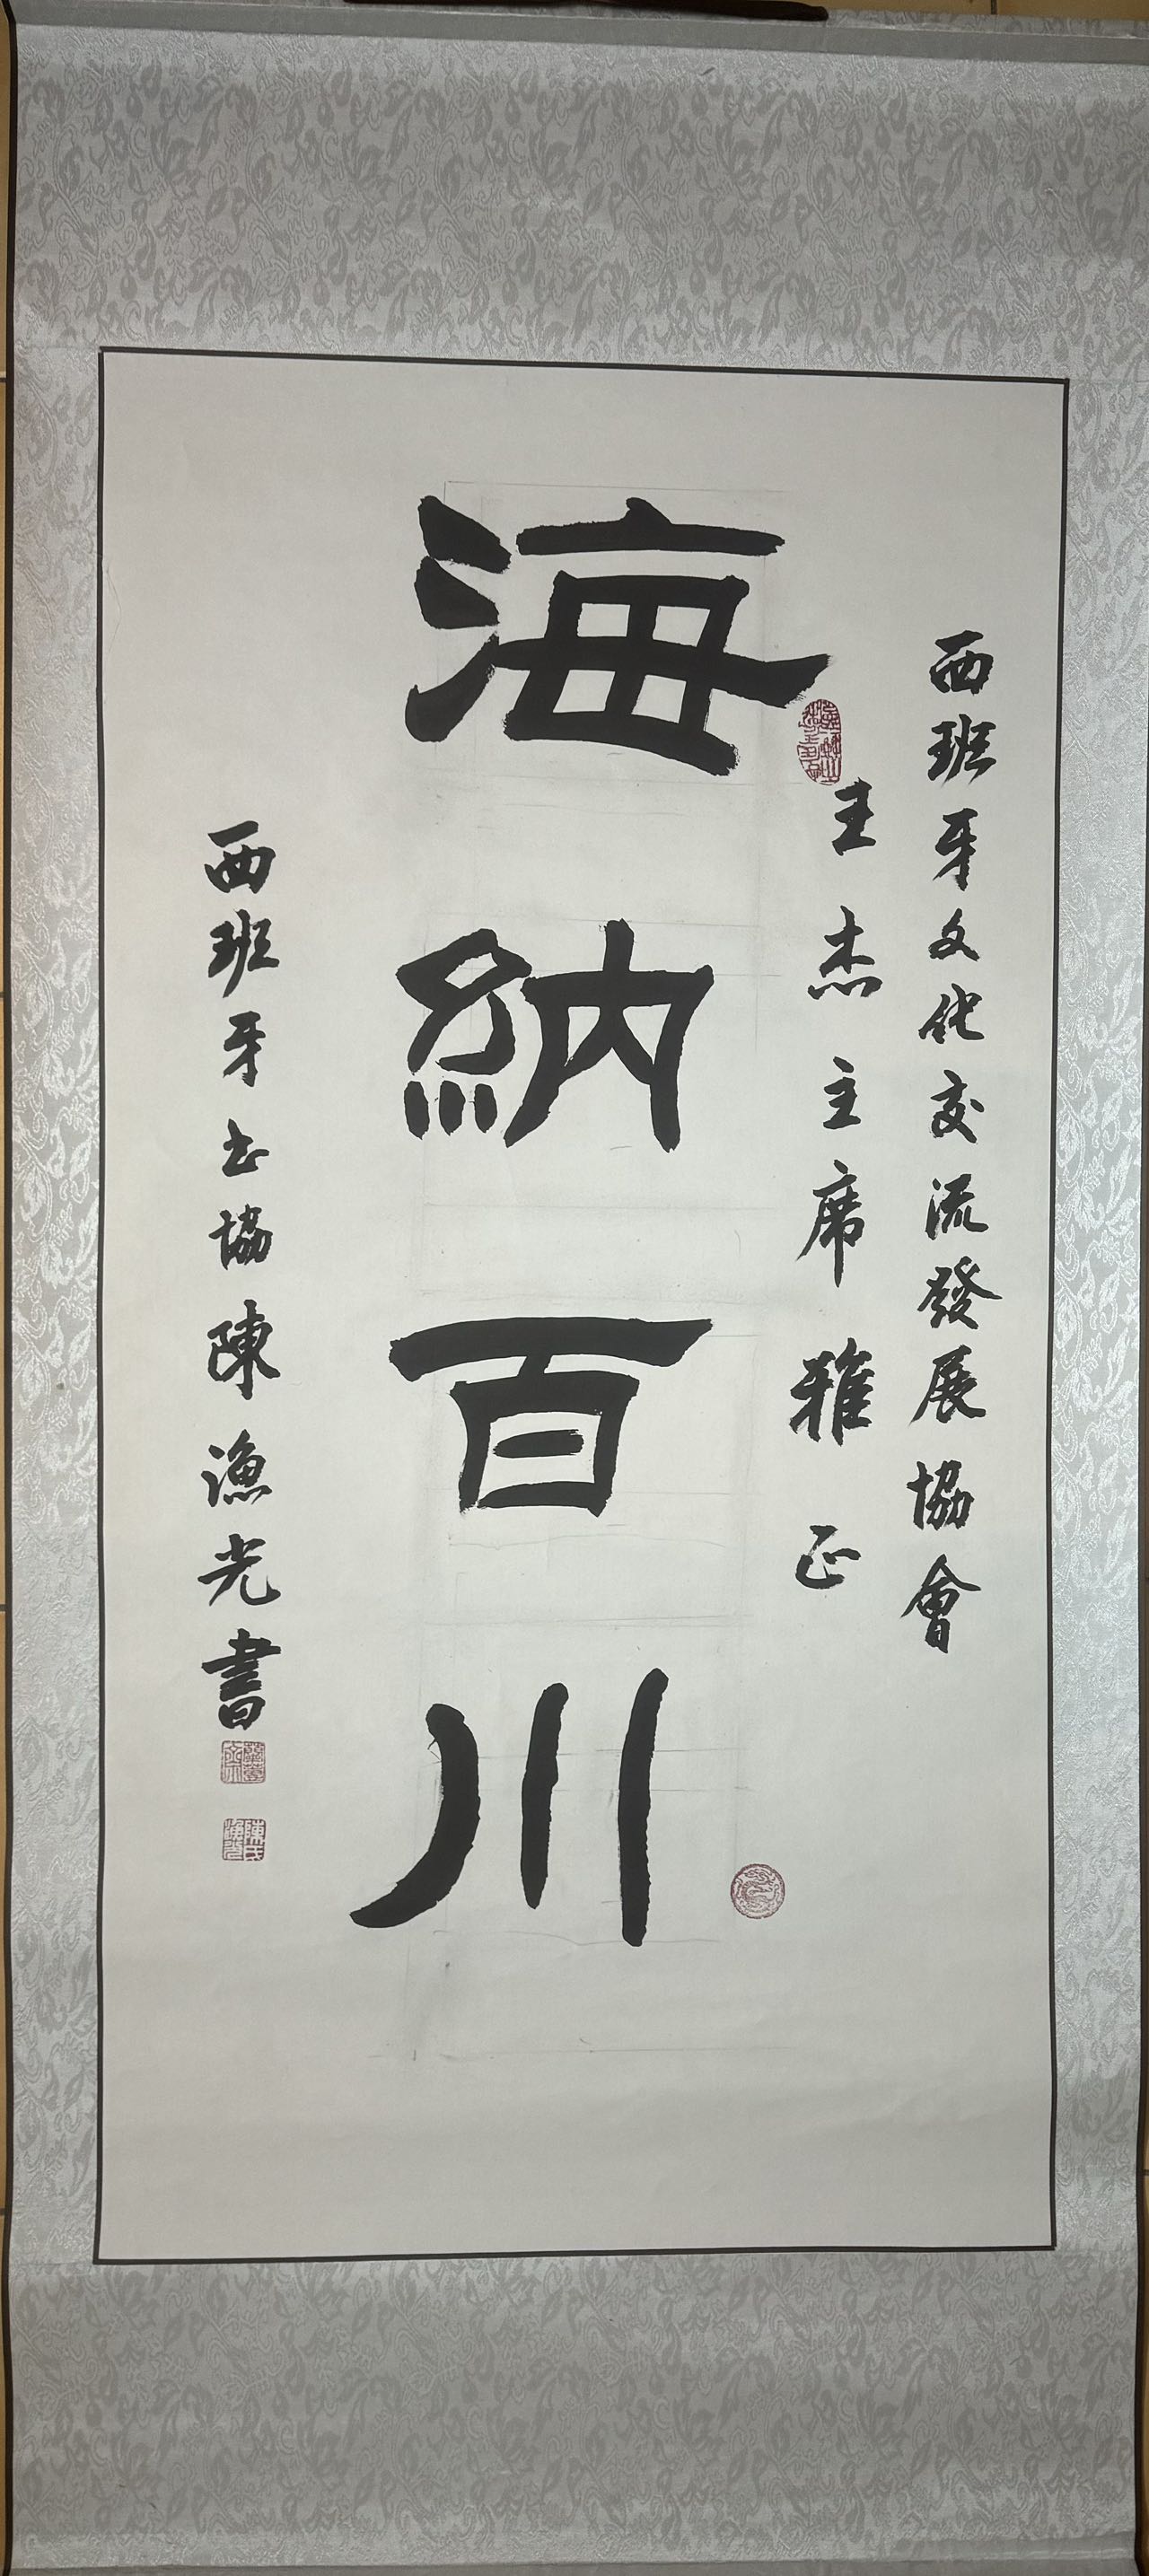 西班牙文化交流發展協會
王杰主席雅正
海納百川
西班牙书協陳漁光書